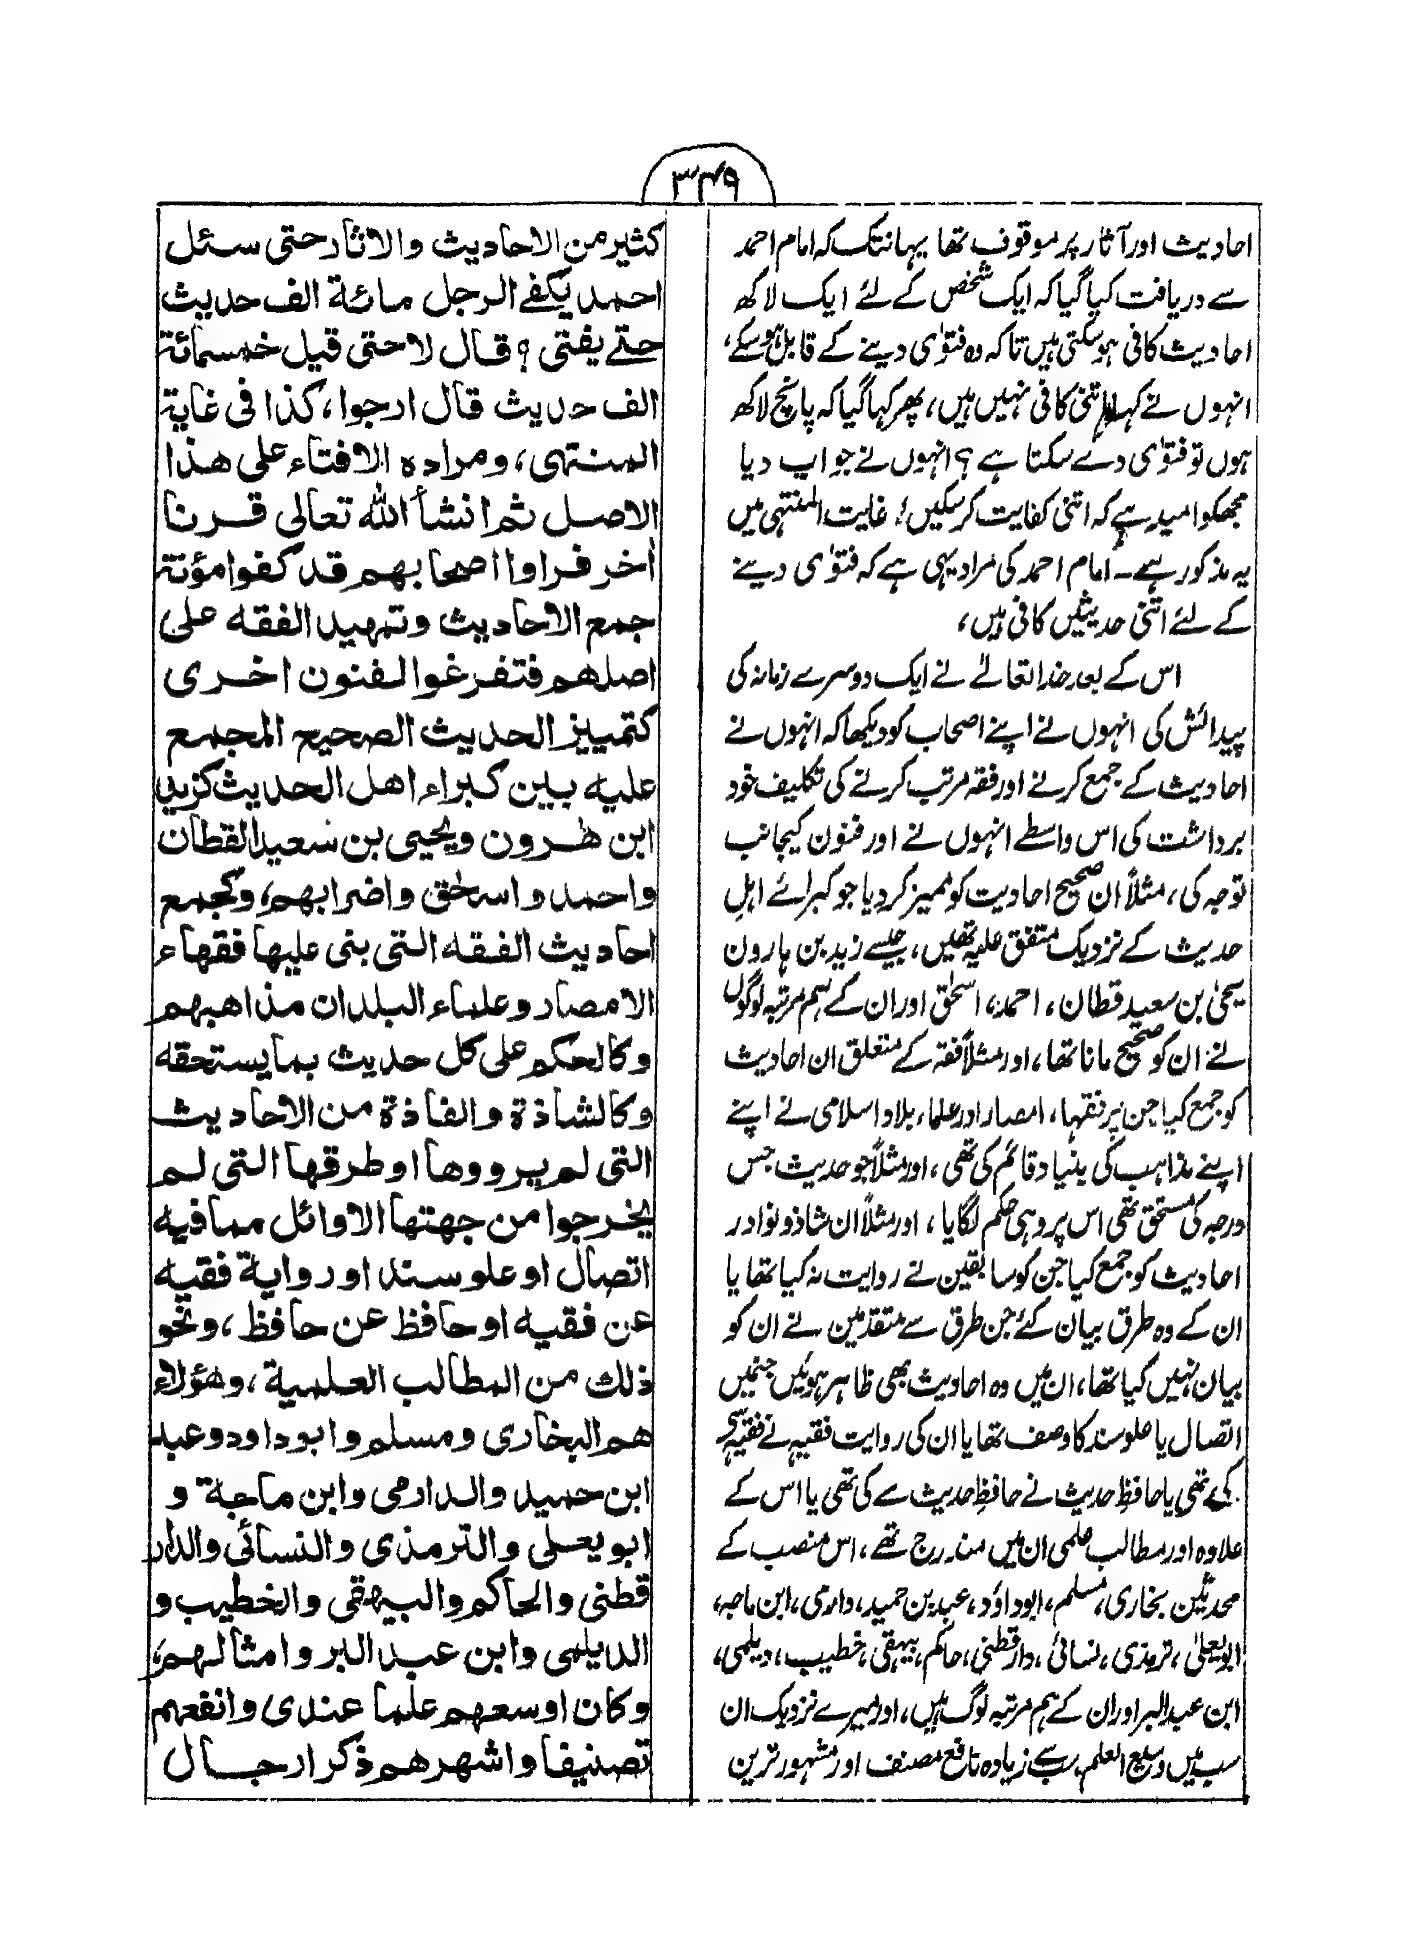 ۳۴۹
احادیث اور آثار پر موقوف تھا یہانتک کہ امام احمد
سے دریافت کیا گیا کہ ایک شخص کے لئے ایک لاکھ
احادیث کافی ہوسکتی ہیں تاکہ وہ فتوٰی دینے کے قابل ہوسکے،
انہوں نے کہا اتنی کافی نہیں ہیں، پھر کہا گیا کہ پانچ لاکھ
ہوں تو فتوٰی دے سکتا ہے؟ انہوں نے جواب دیا
مجھکو امید ہے کہ اتنی کفایت کرسکیں، غایت المنتہی میں
یہ مذکور ہے۔ امام احمد کی مراد یہی ہے کہ فتوٰی دینے
کے لئے اتنی حدیثیں کافی ہیں،
اس کے بعد خدا تعالےٰ نے ایک دوسرے زمانہ کی
پیدائش کی انہوں نے اپنے اصحاب کو دیکھا کہ انہوں نے
احادیث کے جمع کرنے اور فقہ مرتب کرنے کی تکلیف خود
برداشت کی اس واسطے انہوں نے اور فنون کیجانب
توجہ کی، مثلاً ان صحیح احادیث کو ممیز کر دیا جو کبرائے اہلِ
حدیث کے نزدیک متفق علیہ تھیں، جیسے زید بن ہارون
یحیٰی بن سعید قطان، احمد، اسحٰق اور ان کے ہم مرتبہ لوگوں
نے ان کو صحیح مانا تھا، اور مثلاً فقہ کے متعلق ان احادیث
کو جمع کیا جن پر فقہا، امصار اور علماء بلاد اسلامی نے اپنے
اپنے مذاہب کی بنیاد قائم کی تھی، اور مثلاً جو حدیث جس
درجہ کی مستحق تھی اس پر وہی حکم لگایا، اور مثلاً ان شاذ و نوادر
احادیث کو جمع کیا جن کو سابقین نے روایت نہ کیا تھا یا
ان کے وہ طرق بیان کئے جن طرق سے متقدمین نے ان کو
بیان نہیں کیا تھا، ان میں وہ احادیث بھی ظاہر ہوئیں جنمیں
اتصال یا علو سند کا وصف تھا یا ان کی روایت فقیہ نے فقیہ سے
کی تھی یا حافظِ حدیث نے حافظِ حدیث سے کی تھی یا اس کے
علاوہ اور مطالب علمی ان میں مندرج تھے، اس منصب کے
محدثین بخاری، مسلم، ابوداؤد، عبد بن حمید، دارمی، ابن ماجہ،
ابویعلٰی، ترمذی، نسائی، دارقطنی، حاکم، بیہقی، خطیب، دیلمی،
ابن عبدالبر اور ان کے ہم مرتبہ لوگ ہیں، اور میرے نزدیک ان
سب میں وسیع العلم سب سے زیادہ نافع مصنف اور مشہور ترین
کثیر من الاحادیث والاثار حتی سئل
احمد یکفے الرجل مائة الف حدیث
حتے یفتی؟ قال لا حتی قیل خمسمائة
الف حدیث قال ارجوا، کذا فی غایة
المنتهی، ومراده الافتاء علی هذا
الاصل ثم انشأ الله تعالی قرنا
اٰخر فراوا اصحابهم قد کفوا مؤنة
جمع الاحادیث وتمهید الفقه علی
اصلهم فتفرغوا لفنون اخری
کتمییز الحدیث الصحیح المجمع
علیه بین کبراء اهل الحدیث کزید
ابن هٰرون ویحیی بن سعید القطان
واحمد واسحٰق واضرابهم، وکجمع
احادیث الفقه التی بنی علیها فقهاء
الامصار وعلماء البلدان مذاهبهم
وکالحکم علی کل حدیث بما یستحقه
وکالشاذة والفاذة من الاحادیث
التی لم یرووها او طرقها التی لم
یخرجوا من جهتها الاوائل مما فیه
اتصال او علو سند او روایة فقیه
عن فقیه او حافظ عن حافظ، ونحو
ذلک من المطالب العلمیة، وهؤلاء
هم البخاری ومسلم وابوداود وعبد
ابن حمید والدارمی وابن ماجة و
ابویعلی والترمذی والنسائی والدار
قطنی والحاکم والبیهقی والخطیب و
الدیلمی وابن عبد البر وامثالهم،
وکان اوسعهم علما عندی وانفعهم
تصنیفا واشهرهم ذکرا رجال